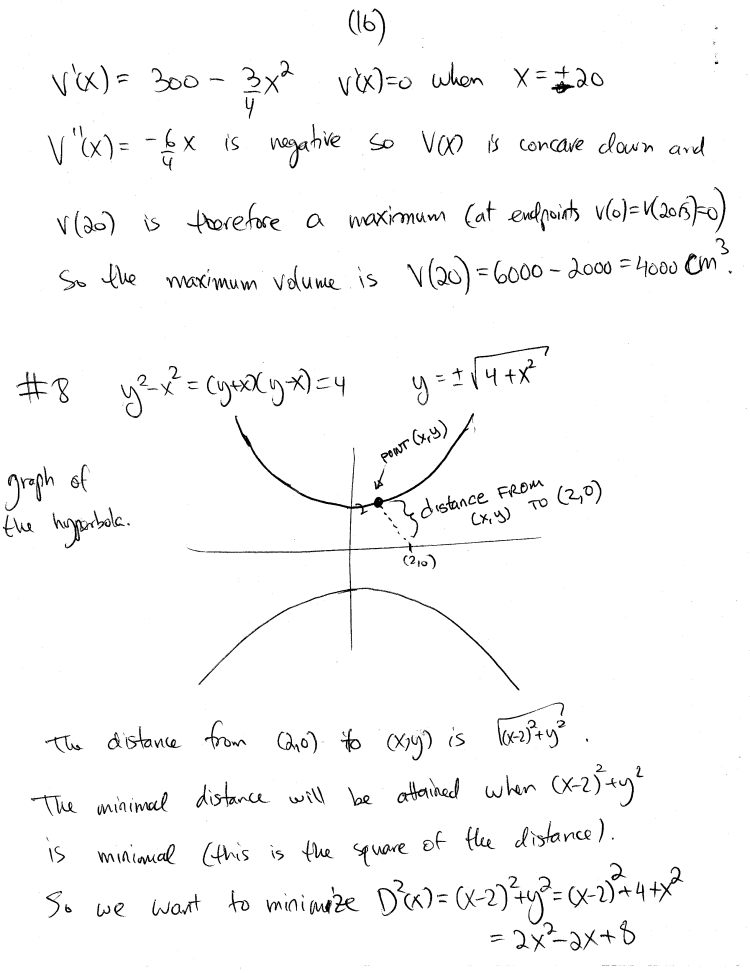 (16)
V'(x) = 300 - 3/4 x² V'(x)=0 when x = ±20
V''(x) = -6/4 x is negative so V(x) is concave down and
V(20) is therefore a maximum (at endpoints V(0)=V(20√3)=0)
So the maximum volume is V(20) = 6000 - 2000 = 4000 cm³.
#8 y²-x² = (y+x)(y-x) = 4 y = ±√4+x²
POINT (x,y)
graph of
the hyperbola.
2
distance FROM
(x,y) TO (2,0)
(2,0)
The distance from (2,0) to (x,y) is √(x-2)²+y².
The minimal distance will be attained when (x-2)²+y²
is minimal (this is the square of the distance).
So we want to minimize D²(x) = (x-2)²+y² = (x-2)²+4+x²
= 2x²-2x+8